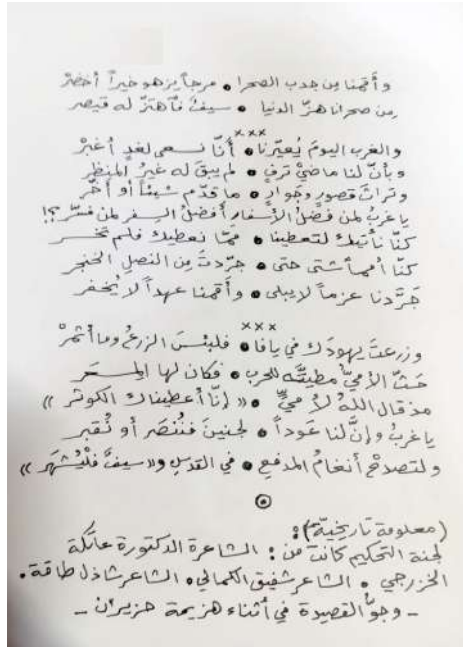 وأقمنا من جدب الصحرا • مرجاً يزهو خيراً أخضرْ
من صحرانا هزّ الدنيا • سيفٌ فاهتزّ له قيصر
×××
والغرب اليومَ يُعيّرنا • أنّا نسعى لغدٍ أغبرْ
وبأنّ لنا ماضيْ ترفٍ • لم يبق له غيرُ المنظر
وتراثَ قصورٍ وجَوارٍ • ما قدّم شيئاً أو أخّر
يا غربُ لمن فضلُ الأسفار أفضلُ السفر لمن فسّر؟!
كنّا نأتيك لتعطينا • فمّا نعطيك فلم تخسر
كنّا أمماً شتى حتى • جرّدتَ مِن النصلِ الخنجر
جَرَّدنا عزماً لا يبلى • وأقمنا عهداً لا يُخفر
×××
وزرعتَ يهودَك في يافا • فلبئسَ الزرعُ وما أثمرْ
حَثَّ الأميُّ مطيتَّه للحرب • فكان لها المسعَر
مذ قال اللهُ لأميٍّ • « إنّا أعطيناك الكوثر »
يا غربُ وإنّ لنا عَوداً • لجنينَ فنُنصَر أو نُقبر
ولتصدحْ أنغامُ المدفعِ • في القدسِ و« سيفٌ فلْيُشهَر »
⊙
(معلومة تاريخيّة):
لجنة التحكيم كانت من: الشاعرة الدكتورة عاتكة
الخزرجي • الشاعر شفيق الكمالي • الشاعر شاذل طاقة.
- وجوُّ القصيدة في أثناء هزيمة حزيران -